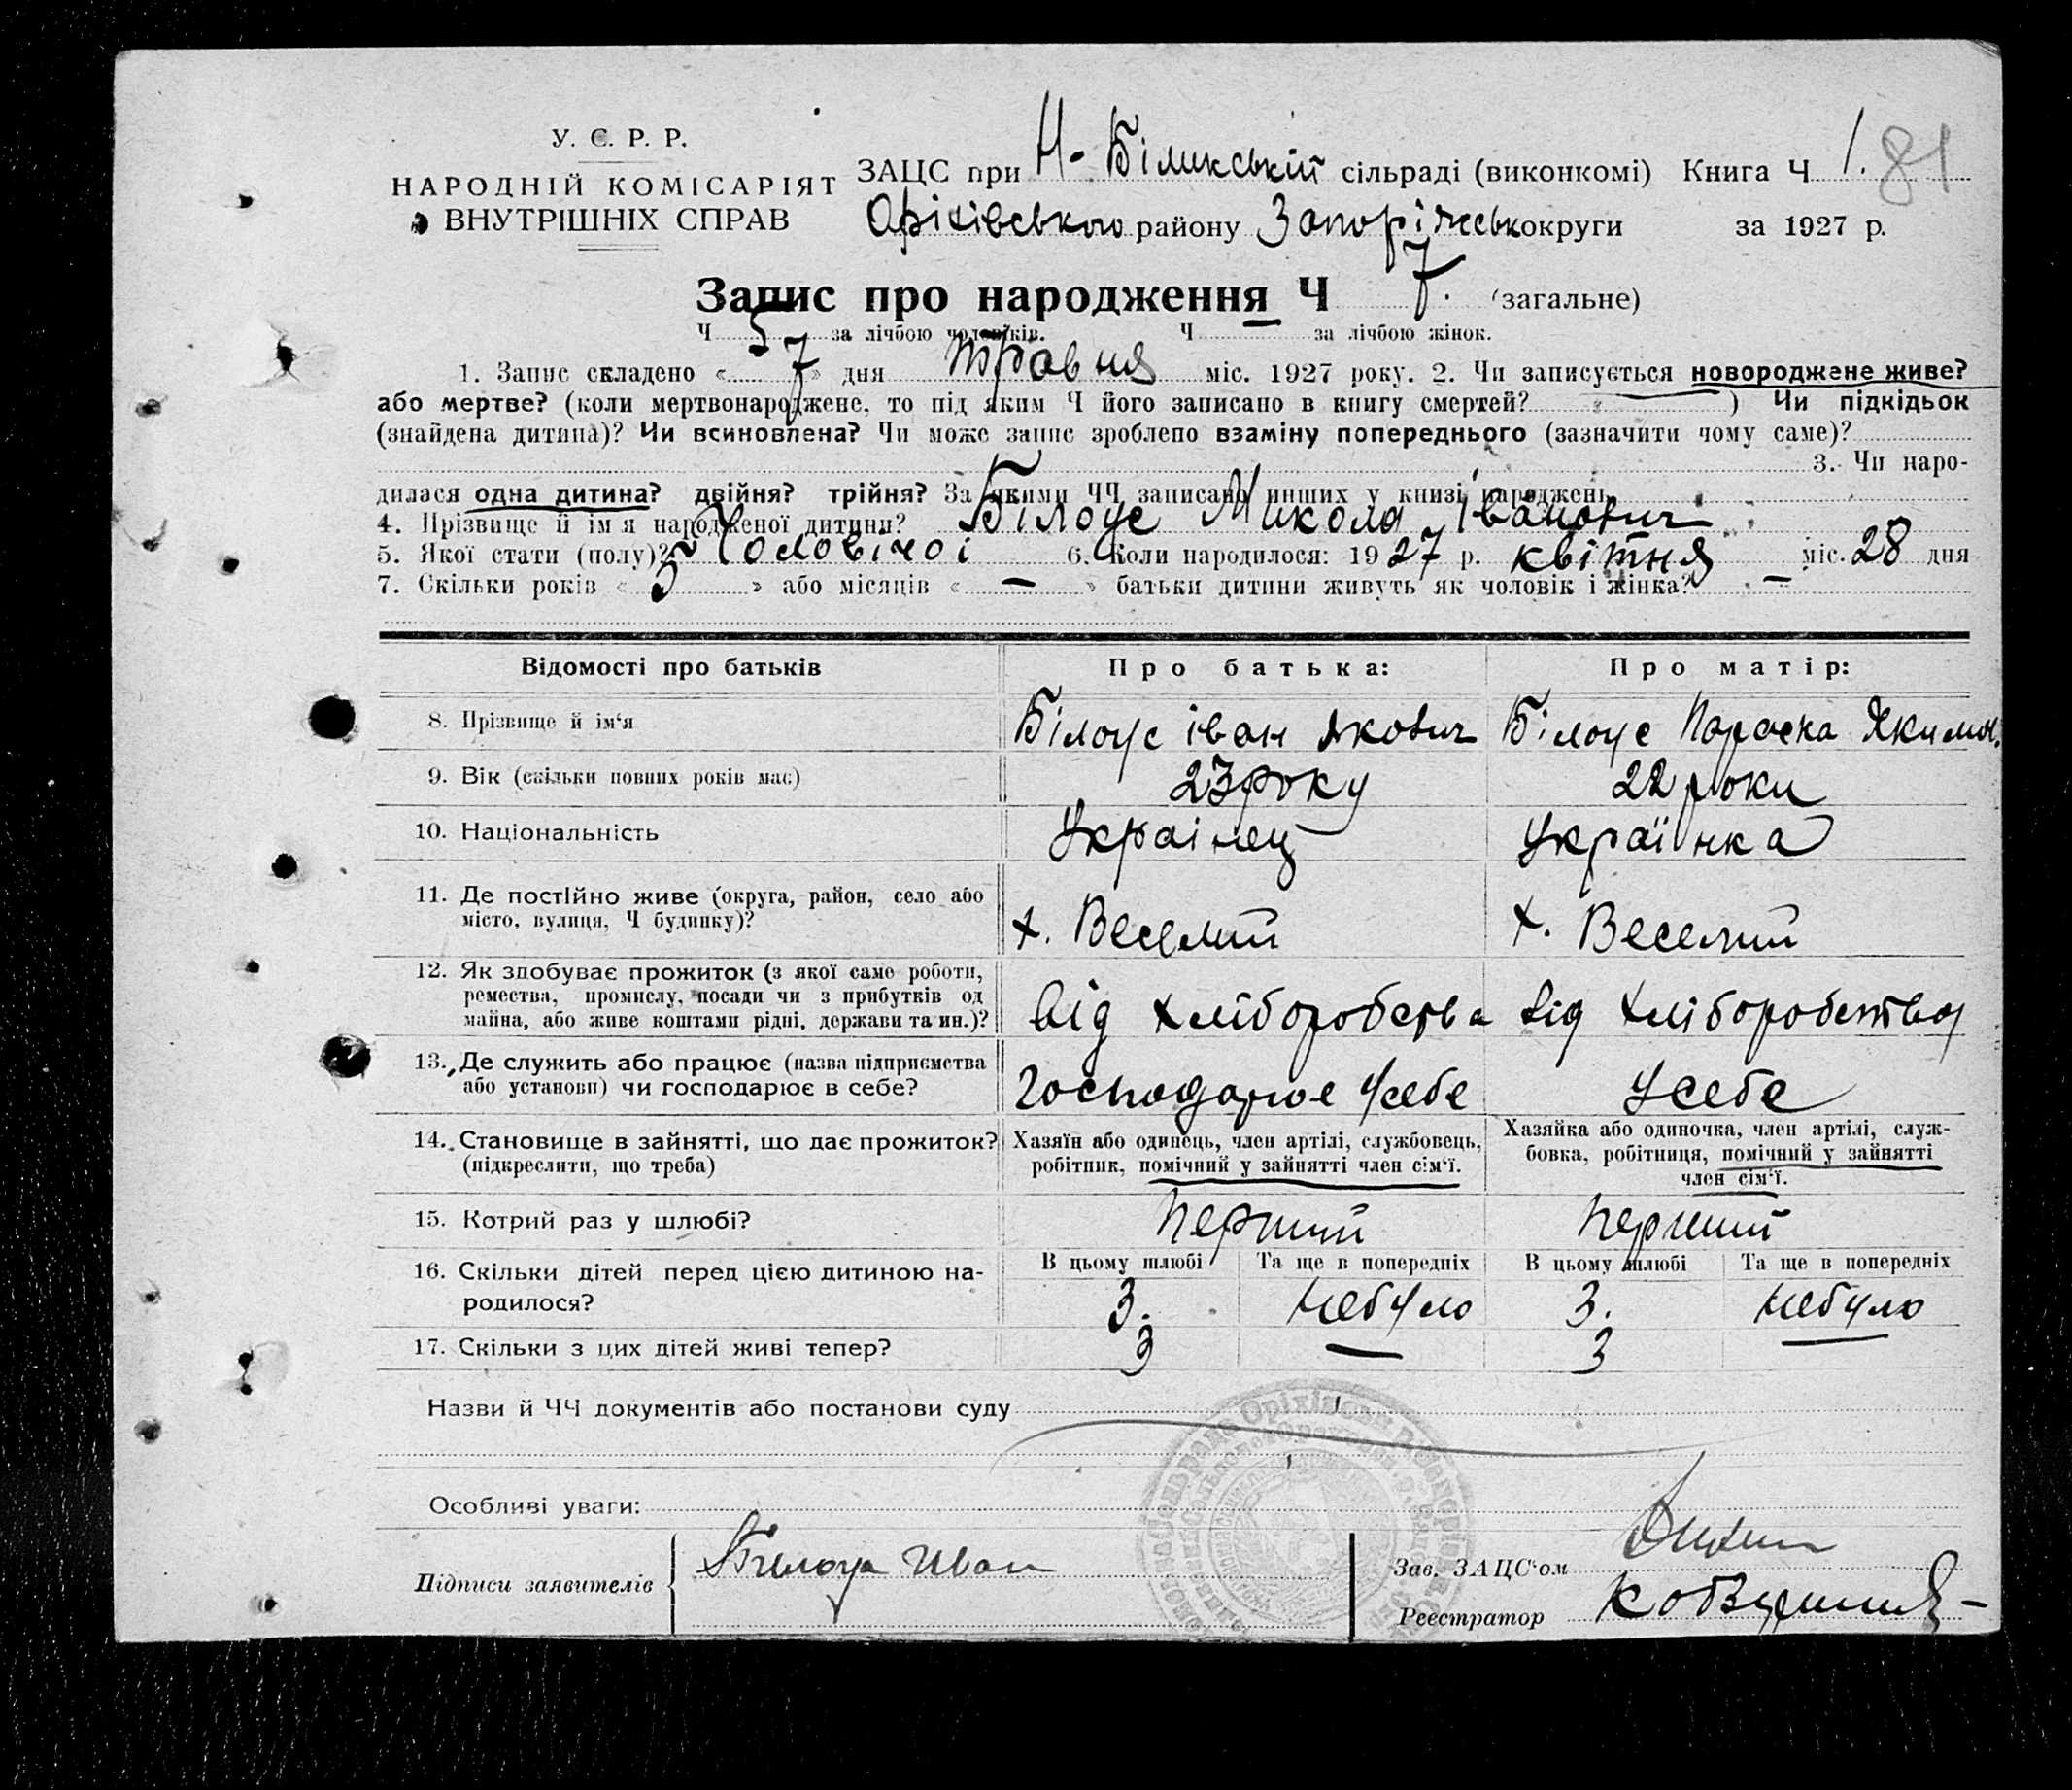 У. С. Р. Р.
НАРОДНІЙ КОМІСАРІЯТ
ВНУТРІШНІХ СПРАВ
ЗАЦС при Н-Біликській сільраді (виконкомі) Книга Ч 1. 81
Оріхівського району Запоріжськ округи за 1927 р.
Запис про народження Ч 7. (загальне)
Ч 5 за лічбою чоловіків. Ч — за лічбою жінок.
1. Запис складено « 7 » дня травня міс. 1927 року. 2. Чи записується новороджене живе?
або мертве? (коли мертвонароджене, то під яким Ч його записано в книгу смертей? ) Чи підкідьок
(знайдена дитина)? Чи всиновлена? Чи може запис зроблено взаміну попереднього (зазначити чому саме)?
3. Чи наро-
дилася одна дитина? двійня? трійня? За якими ЧЧ записано инших у книзі народжень
4. Прізвище й ім'я народженої дитини? Білоус Микола Іванович
5. Якої стати (полу)? Чоловічої 6. Коли народилося: 1927 р. квітня міс. 28 дня
7. Скільки років « 5 » або місяців « — » батьки дитини живуть як чоловік і жінка? —
Відомості про батьків Про батька: Про матір:
8. Прізвище й ім'я Білоус Іван Якович Білоус Параска Яким.
9. Вік (скільки повних років має) 23 року 22 роки
10. Національність Українец Українка
11. Де постійно живе (округа, район, село або
місто, вулиця, Ч будинку)? х. Веселий х. Веселий
12. Як здобуває прожиток (з якої саме роботи,
ремества, промислу, посади чи з прибутків од
майна, або живе коштами рідні, держави та ин.)? від хліборобства від хліборобства
13. Де служить або працює (назва підприємства
або установи) чи господарює в себе? Господарює усебе усебе
14. Становище в зайнятті, що дає прожиток?
(підкреслити, що треба)
Хазяїн або одинець, член артілі, службовець,
робітник, помічний у зайнятті член сім'ї.
Хазяйка або одиночка, член артілі, служ-
бовка, робітниця, помічний у зайнятті
член сім'ї.
15. Котрий раз у шлюбі? перший перший
16. Скільки дітей перед цією дитиною на-
родилося?
В цьому шлюбі Та ще в попередніх В цьому шлюбі Та ще в попередніх
3. небуло 3. небуло
17. Скільки з цих дітей живі тепер? 3 — 3 —
Назви й ЧЧ документів або постанови суду
Особливі уваги:
Підписи заявителів Билоус Иван
Зав. ЗАЦС'ом
Реєстратор